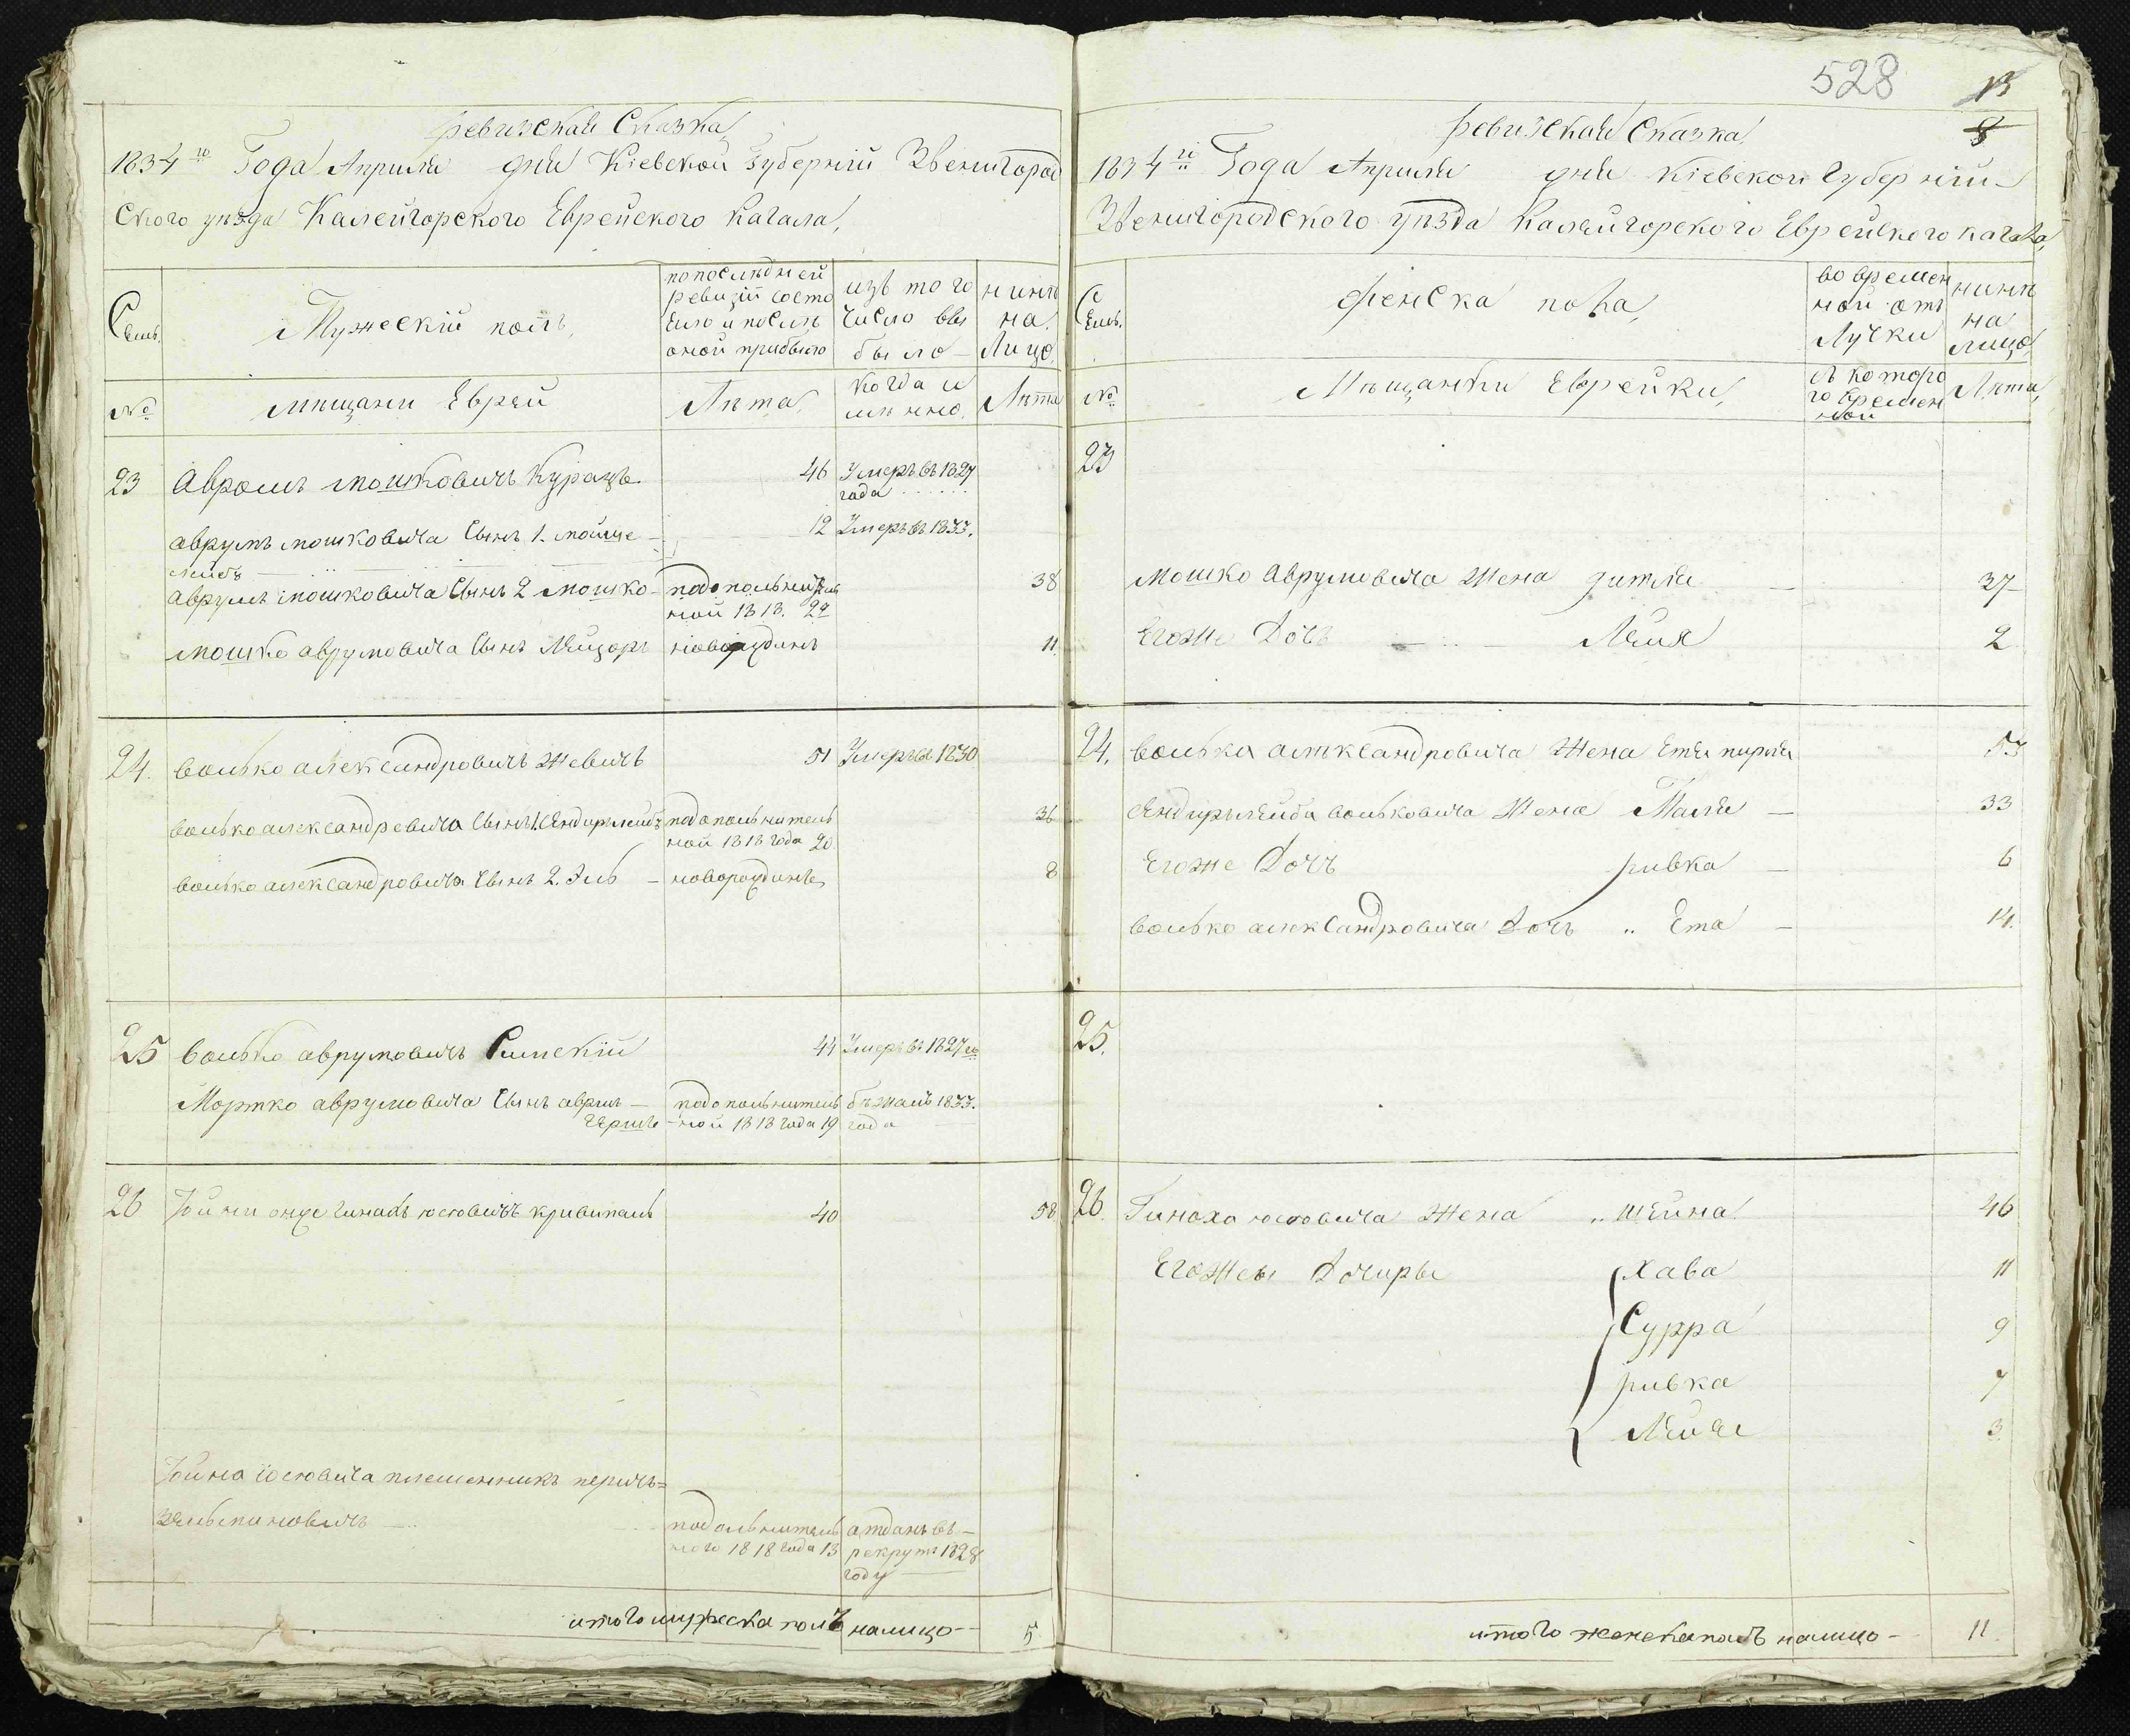 ревизская Сказка
1834го Года Апреля дня Кіевской Губерніи Звенигород
Ского уезда Калейгорского Еврейского Кагала,
Семь.
Мужескій полъ,
по последней
ревизіи состо
яло и после
оной прибыло
изъ того
число вы
было
нине
на
Лицо,
№
мещани Еврей
Лета,
когда и
имянно.
Лета
23 Авромъ Мошковичъ Курацъ 46 Умеръ въ 1827
года
аврумъ мошковича Сынъ 1. мойше 12 Умеръ въ 1833.
лейбъ
аврумъ мошковича Сынъ 2 мошко подополнитель 38
ной 1818. 22
мошко аврумовича Сынъ Лейзоръ новорождинъ 11.
24. волько александровичъ Жевичъ 51 Умеръ въ 1830
волько александровича Сынъ 1. Сендирълейбъ подополнитель 36
ной 1818 года 20
волько александровича Сынъ 2. Эль новорождинъ 8
25 волько аврумовичъ Римскій 44 Умеръ въ 1827го
Мортко аврумовича Сынъ аврумъ подополнитель бежалъ 1833.
Гершъ ной 1818 года 19 года
26 Гинахъ юсіовичъ 40 58
Йойна Юсіовича племенникъ
подополнитель атданъ въ
ного 1818 года 13 рекрутъ 1828
году
итого мужеска полъ налицо 5
528
13
8
ревизская Сказка,
1834го Года Апреля дня Кіевской Губерніи
Звенигородского уезда Калейгорского Еврейского кагала,
Семь.
Женска пола,
во времен
ной отъ
Лучки
нине
на
лицо,
№
Мещанки Еврейки,
съ которо
го времен
ной
Лета,
23
Мошко Аврумовича Жена гитля 37
Егоже Дочь Лея 2
24. волька александровича Жена Етя пирля 53
Сендирълейба вольковича Жена Маля 33
Егоже Дочъ ривка 6
волько александровича Дочъ " Ета 14.
25.
26. Гинаха юсіовича Жена " Шейна 46
Егожеы Дочиры Хава 11
Сурра 9
ривка 7
3
итого женска полъ налицо 11.